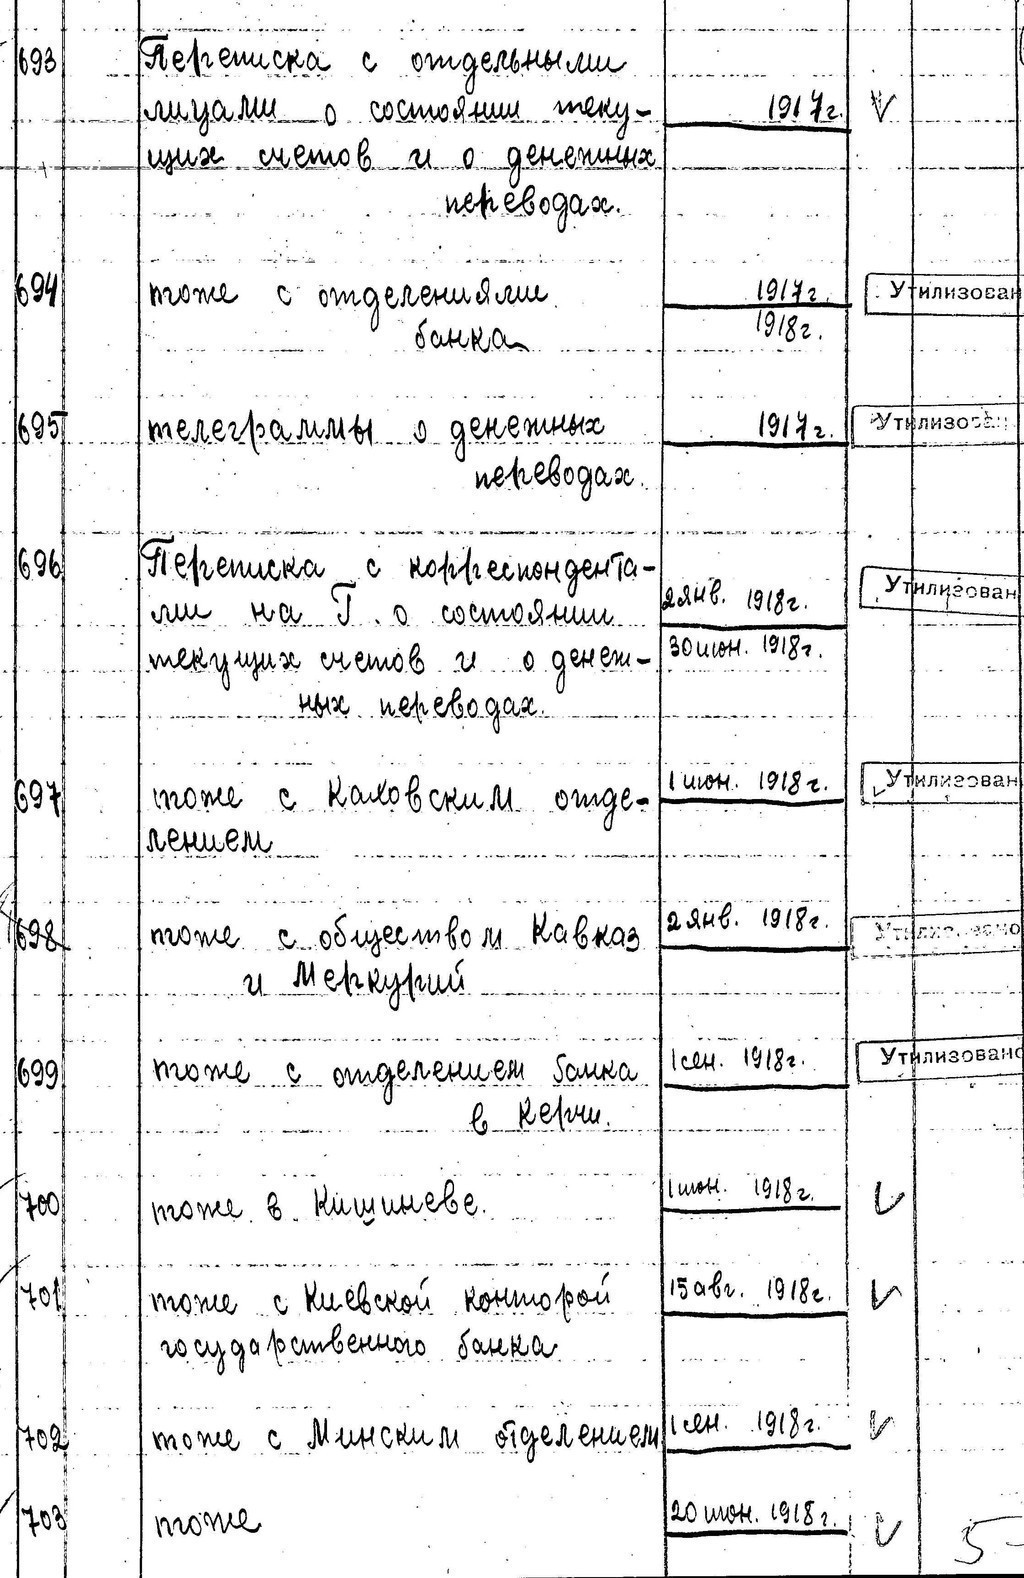 693 Переписка с отдельными
лицами о состоянии теку- 1917г.
щих счетов и о денежных
переводах.
694 тоже с отделениями 1917г. Утилизован
банка 1918г.
695 телеграммы о денежных 1917г. Утилизован
переводах.
696 Переписка с корреспондента- Утилизован
ми на Т. о состоянии 2 янв. 1918г.
текущих счетов и о денеж- 30 июн. 1918г.
ных переводах.
697 тоже с Каховским отде- 1 июн. 1918г. Утилизован
лением
698 тоже с обществом Кавказ 2 янв. 1918г.
и Меркурий
699 тоже с отделением банка 1 сен. 1918г. Утилизовано
в Керчи.
700 тоже в Кишиневе. 1 июн. 1918г.
701 тоже с Киевской конторой 15 авг. 1918г.
государственного банка
702 тоже с Минским отделением 1 сен. 1918г.
703 тоже 20 июн. 1918г.
5-